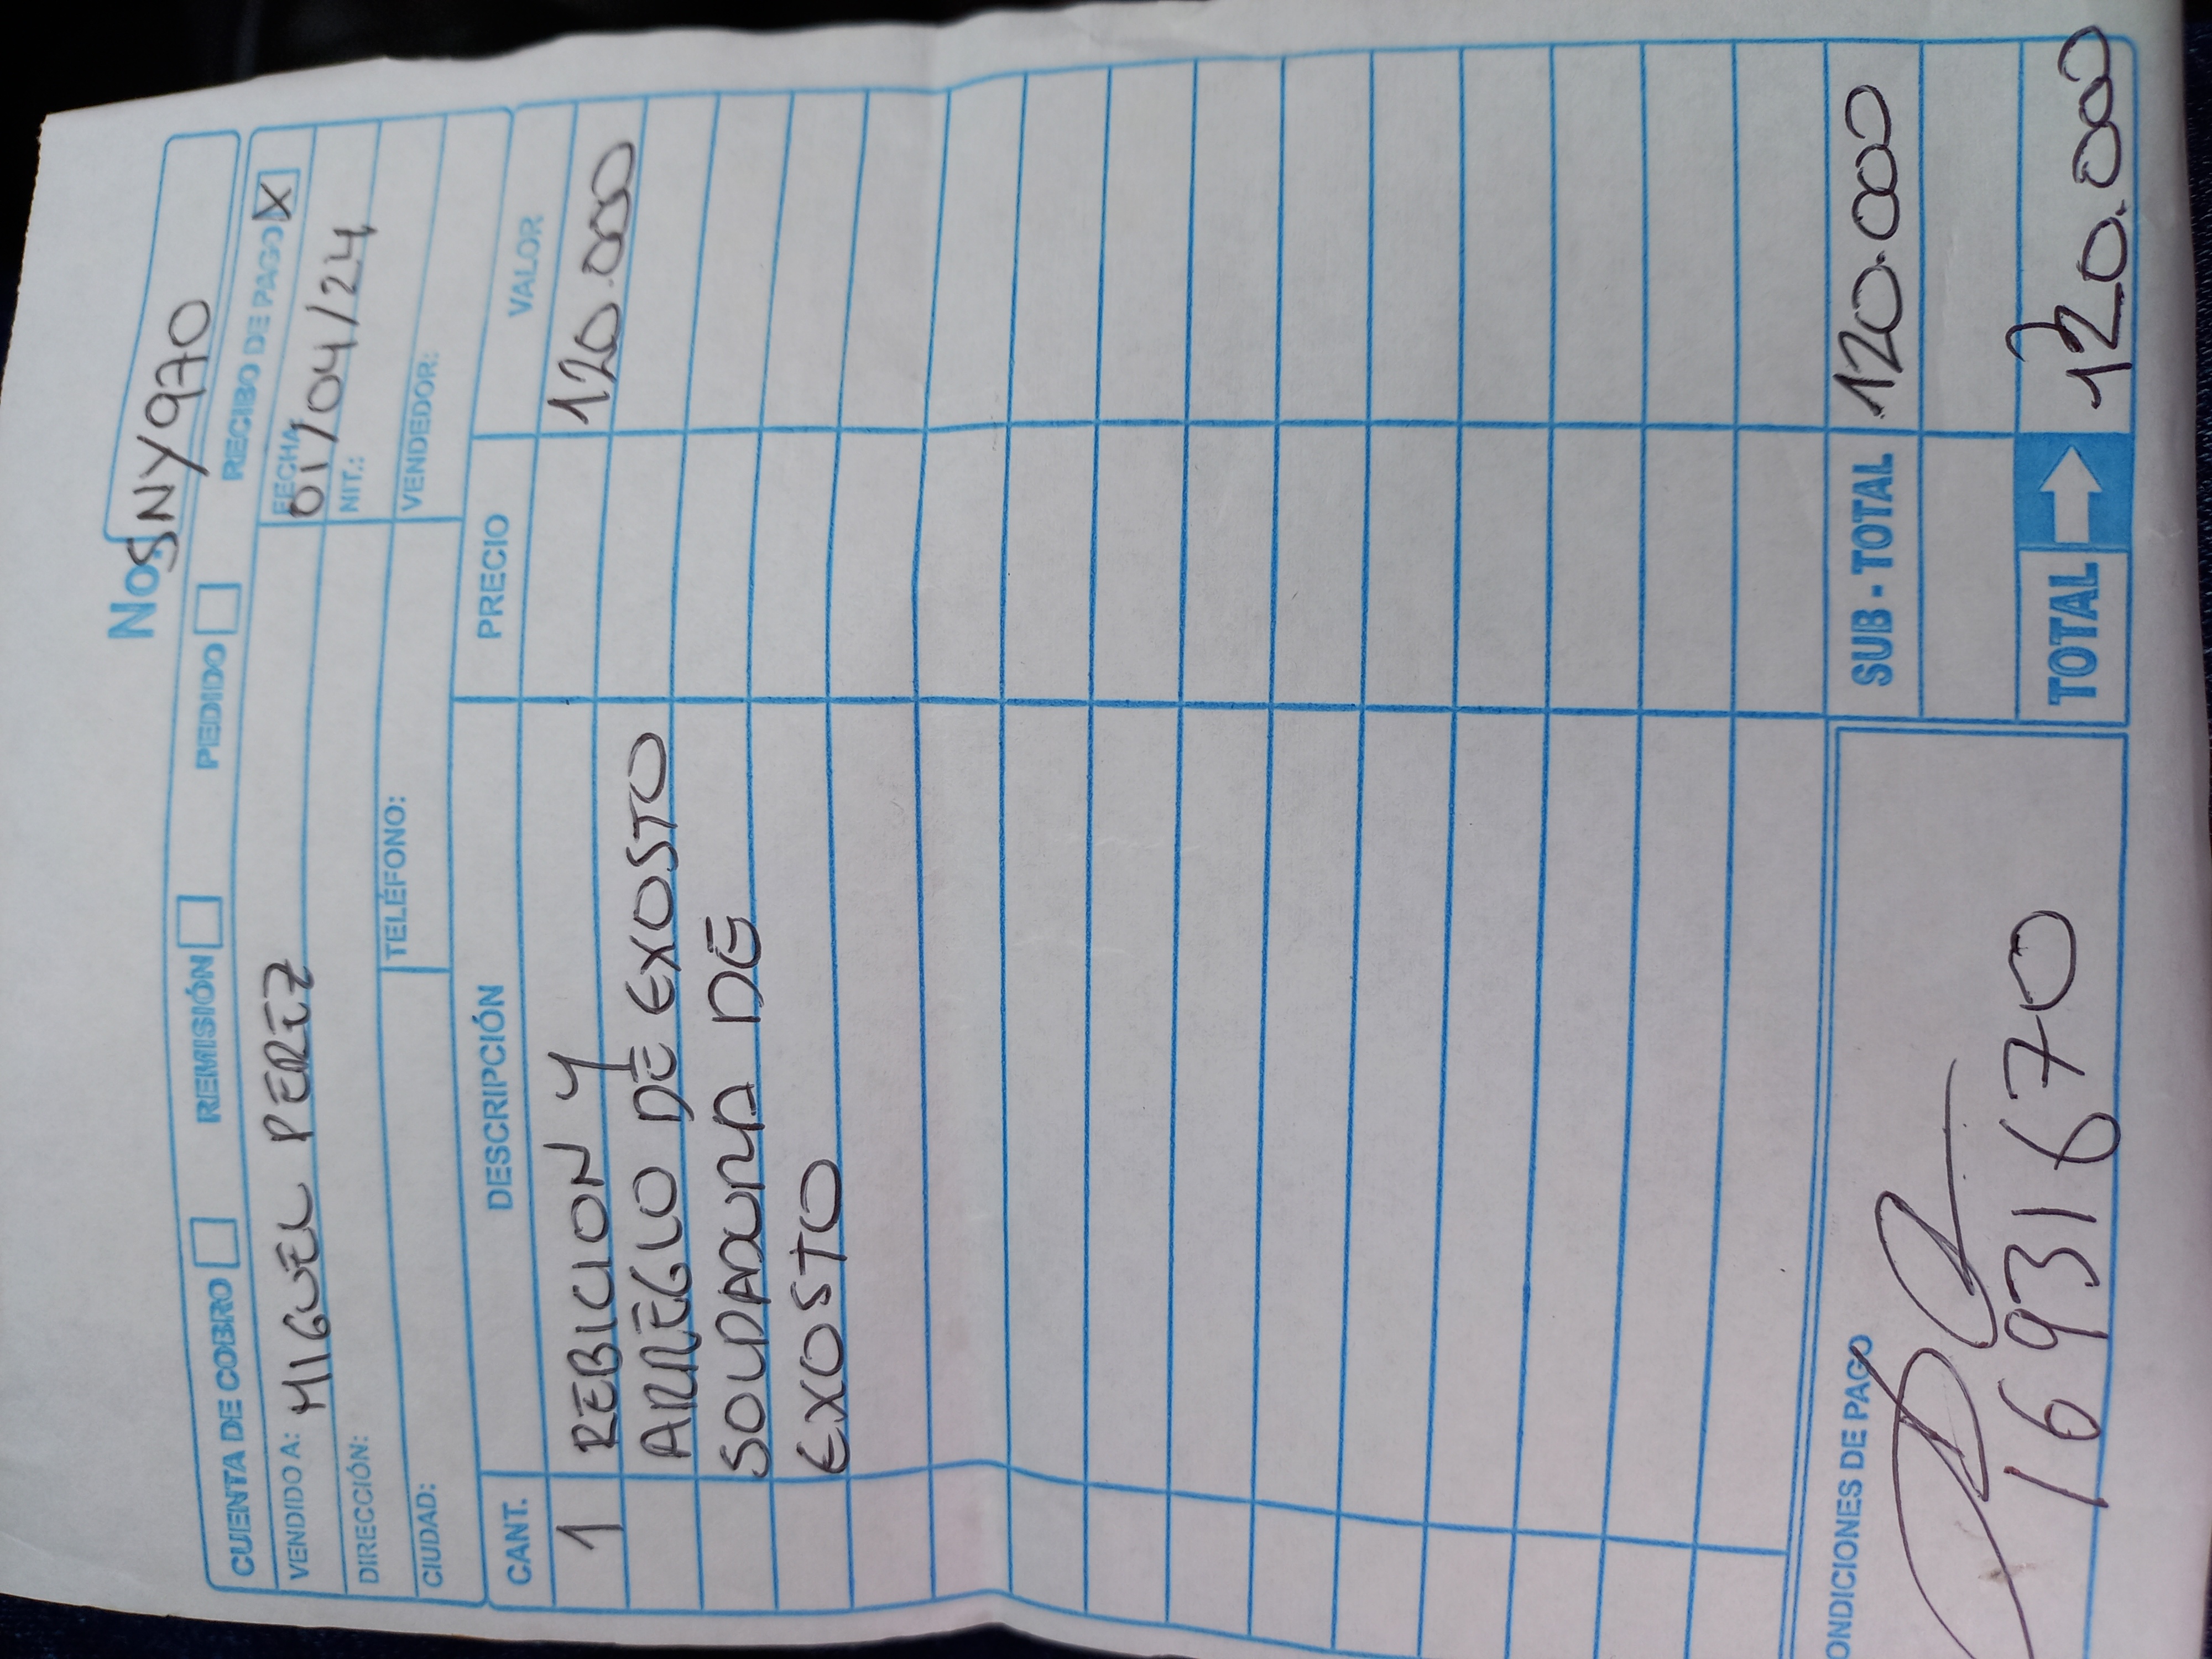 No. SNY970
CUENTA DE COBRO REMISIÓN PEDIDO RECIBO DE PAGO X
VENDIDO A: MIGUEL PEREZ FECHA 01/04/24
DIRECCIÓN: NIT.:
CIUDAD: TELÉFONO: VENDEDOR:
CANT. DESCRIPCIÓN PRECIO VALOR
1 REBICION Y 120.000
ARREGLO DE EXOSTO
SOLDADURA DE
EXOSTO
ONDICIONES DE PAGO SUB - TOTAL 120.000
16931670 TOTAL 120.000